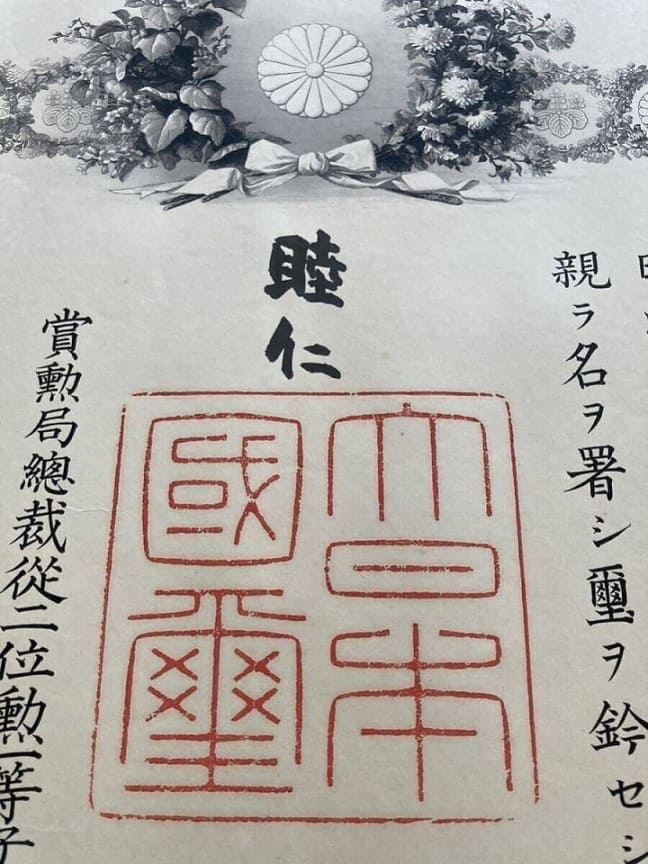 親ラ名ヲ署シ璽ヲ鈐セシ
睦仁
大日本
國璽
賞勳局總裁從二位勳一等子